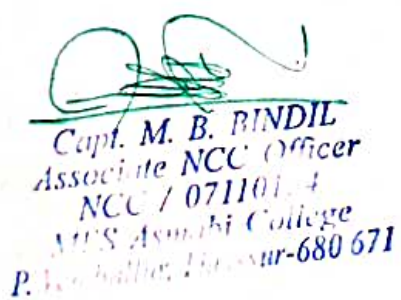 Capt. M. B. BINDIL
Associate NCC Officer
NCC /
MES Asmabi College
P. -680 671